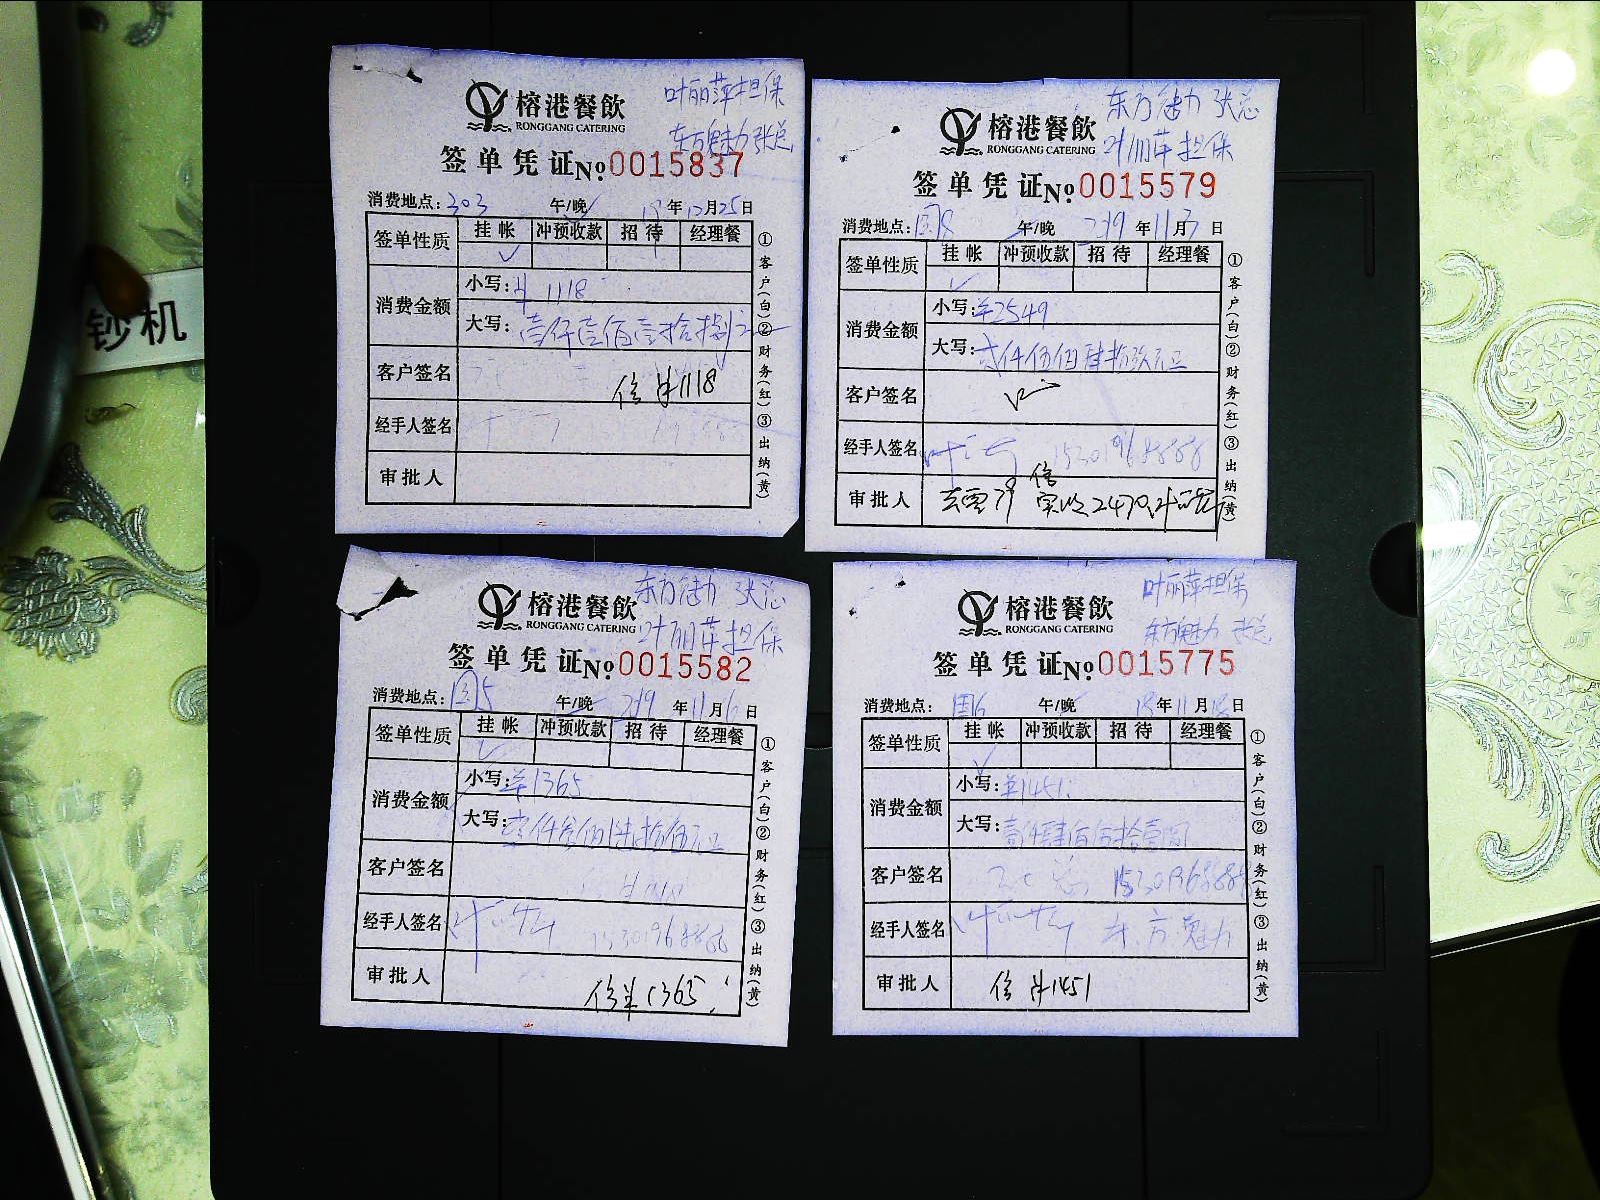 钞机
叶丽萍担保
榕港餐飲
RONGGANG CATERING
东方魅力 张总
签单凭证 No 0015837
消费地点: 303 午/晚 19年12月25日
签单性质 挂帐 冲预收款 招待 经理餐
消费金额
小写: ¥ 1118
大写: 壹仟壹佰壹拾捌元
客户签名 信 ¥1118
经手人签名
审批人
①客户(白)②财务(红)③出纳(黄)
东方魅力 张总
榕港餐飲
RONGGANG CATERING
叶丽萍担保
签单凭证 No 0015579
消费地点: 午/晚 2019年11月3日
签单性质 挂帐 冲预收款 招待 经理餐
消费金额
小写: ¥2549
大写: 贰仟伍佰肆拾玖元正
客户签名
经手人签名 15301968888
审批人 信 实收2470
①客户(白)②财务(红)③出纳(黄)
东方魅力 张总
榕港餐飲
RONGGANG CATERING
叶丽萍担保
签单凭证 No 0015582
消费地点: 午/晚 2019年11月6日
签单性质 挂帐 冲预收款 招待 经理餐
消费金额
小写: ¥1365
大写: 壹仟叁佰陆拾伍元正
客户签名
经手人签名
审批人 信¥1365
①客户(白)②财务(红)③出纳(黄)
叶丽萍担保
榕港餐飲
RONGGANG CATERING
东方魅力 张总
签单凭证 No 0015775
消费地点: 国6 午/晚 19年11月18日
签单性质 挂帐 冲预收款 招待 经理餐
消费金额
小写: ¥1451
大写: 壹仟肆佰伍拾壹圆
客户签名
经手人签名 东方魅力
审批人 信 ¥1451
①客户(白)②财务(红)③出纳(黄)